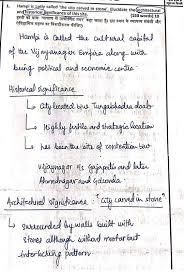 1. Hampi is aptly called "the city carved in stone". Elucidate the architectural
and historical significance of this site. (150 words) 10
Hampi is called the cultural capital
of the Vijaynagar Empire along with
being political and economic centre.
Historical significance
↳ City located b/w Tungabhadra doab
↳ Highly fertile and strategic location
↳ has been the site of contention b/w
Vijaynagar vs Gajapatis and later
Ahmednagar and Golconda.
Architectural significance: "city carved in stone"
↳ surrounded by walls built with
stones although without mortar but
interlocking pattern